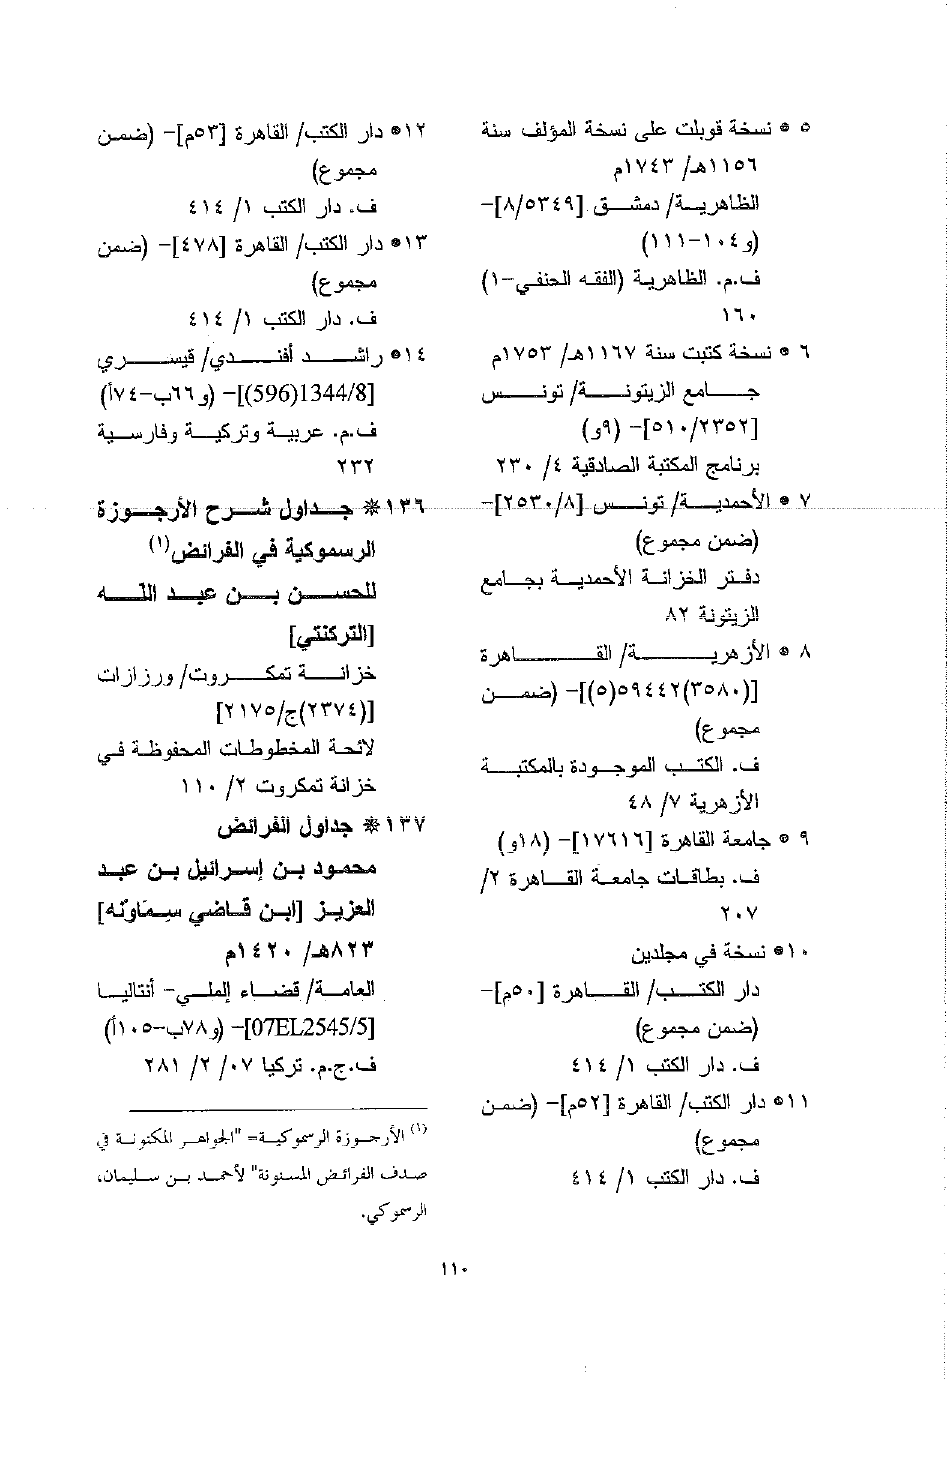 ٥ * نسخة قوبلت على نسخة المؤلف سنة
١١٥٦هـ/ ١٧٤٣م
الظاهرية/ دمشق [٨/٥٣٤٩]-
(و١٠٤-١١١)
ف.م. الظاهرية (الفقه الحنفي-١)
١٦٠
٦ * نسخة كتبت سنة ١١٦٧هـ/ ١٧٥٣م
جامع الزيتونة/ تونس
[٥١٠/٢٣٥٢]- (٩و)
برنامج المكتبة الصادقية ٤/ ٢٣٠
٧ * الأحمدية/ تونس [٢٥٣٠/٨]-
(ضمن مجموع)
دفتر الخزانة الأحمدية بجامع
الزيتونة ٨٢
٨ * الأزهرية/ القاهرة
[(٣٥٨٠)٥٩٤٤٢(٥)]- (ضمن
مجموع)
ف. الكتب الموجودة بالمكتبة
الأزهرية ٧/ ٤٨
٩ * جامعة القاهرة [١٧٦١٦]- (١٨و)
ف. بطاقات جامعة القاهرة ٢/
٢٠٧
١٠* نسخة في مجلدين
دار الكتب/ القاهرة [٥٠م]-
(ضمن مجموع)
ف. دار الكتب ١/ ٤١٤
١١* دار الكتب/ القاهرة [٥٢م]- (ضمن
مجموع)
ف. دار الكتب ١/ ٤١٤
١٢* دار الكتب/ القاهرة [٥٣م]- (ضمن
مجموع)
ف. دار الكتب ١/ ٤١٤
١٣* دار الكتب/ القاهرة [٤٧٨]- (ضمن
مجموع)
ف. دار الكتب ١/ ٤١٤
١٤* راشد أفندي/ قيسري
[1344/8(596)]- (و٦٦ب-٧٤أ)
ف.م. عربية وتركية وفارسية
٢٣٢
١٣٦* جداول شرح الأرجوزة
الرسموكية في الفرائض(١)
للحسن بن عبد الله
[التركنتي]
خزانة تمكروت/ ورزازات
[(٢٣٧٤)ج/٢١٧٥]
لائحة المخطوطات المحفوظة في
خزانة تمكروت ٢/ ١١٠
١٣٧* جداول الفرائض
محمود بن إسرائيل بن عبد
العزيز [ابن قاضي سماونه]
٨٢٣هـ/ ١٤٢٠م
العامة/ قضاء إلملي- أنتاليا
[07EL2545/5]- (و٧٨ب-١٠٥أ)
ف.ج.م. تركيا ٠٧/ ٢/ ٢٨١
(١) الأرجوزة الرسموكية= "الجواهر المكنونة في
صدف الفرائض المسنونة" لأحمد بن سليمان،
الرسموكي.
١١٠